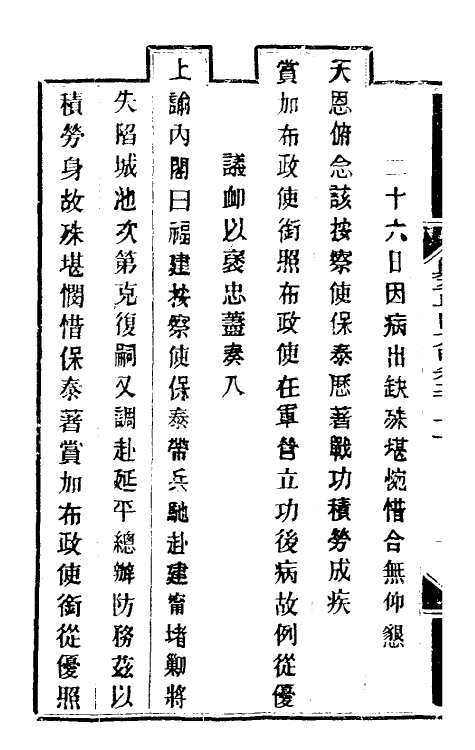 二十六日因病出缺殊堪惋惜合無仰懇
天恩俯念該按察使保泰歷著戰功積勞成疾
賞加布政使銜照布政使在軍營立功後病故例從優
議卹以褒忠藎奏入
上諭內閣曰福建按察使保泰帶兵馳赴建甯堵勦將
失陷城池次第克復嗣又調赴延平總辦防務茲以
積勞身故殊堪憫惜保泰著賞加布政使銜從優照